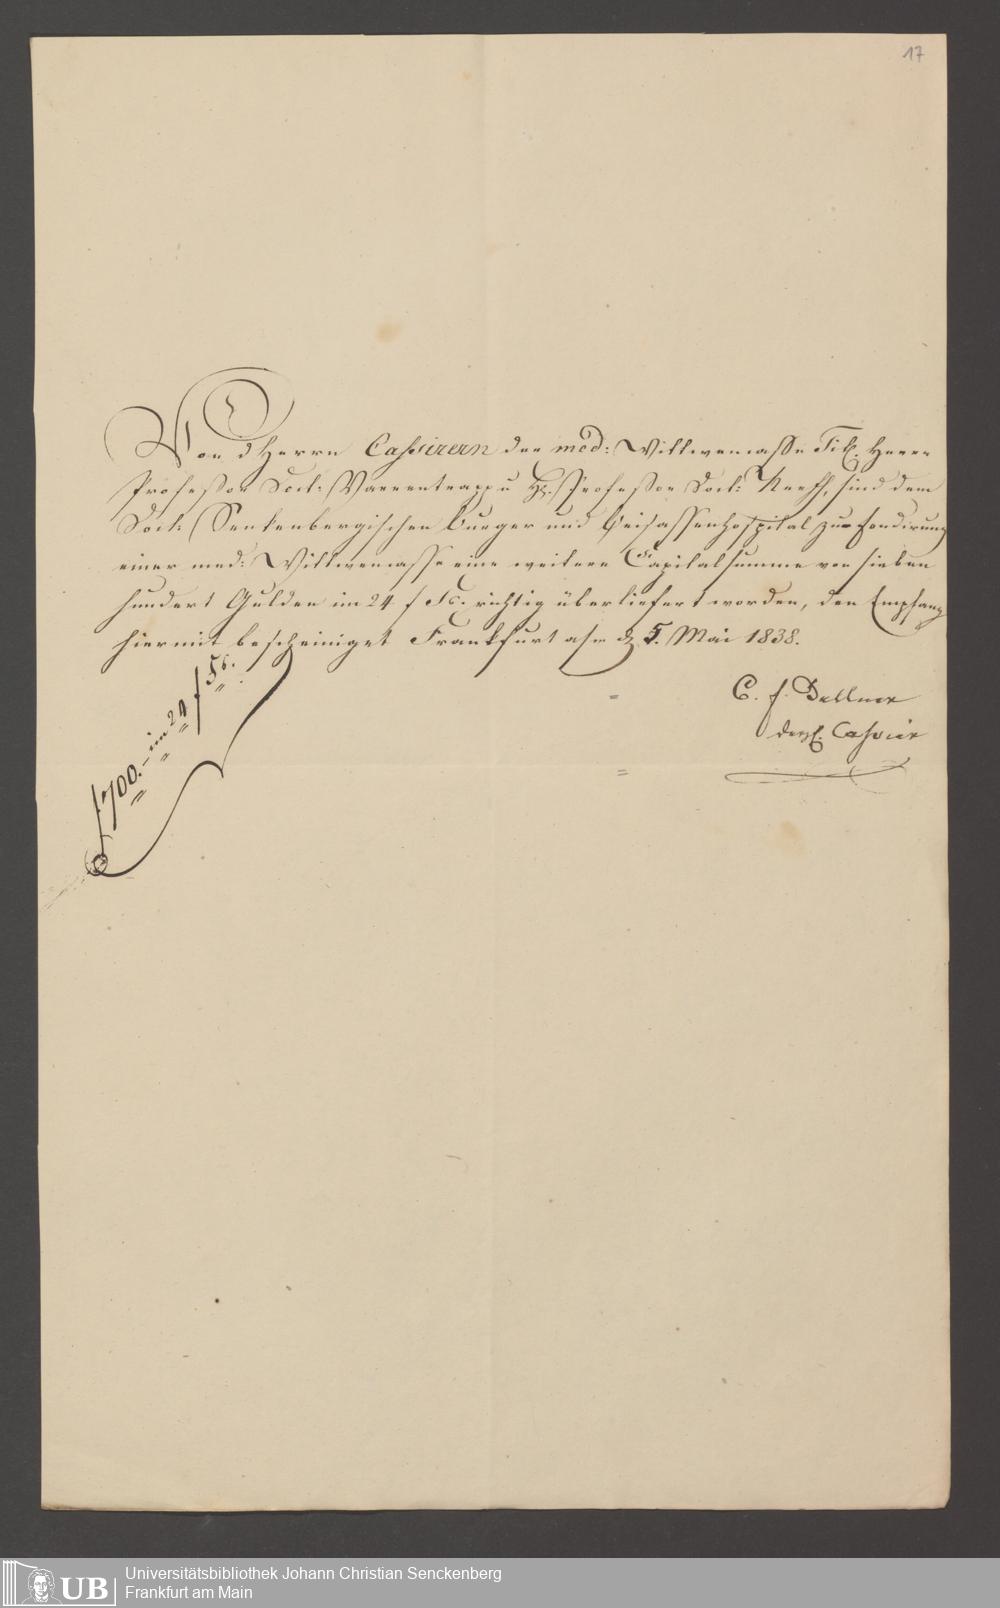 17
Von d Herrn Cassirern der med: Wittwencasse Titl. Herrn
Professor Doct: Varrentrapp u Hr. Professor Doct: Neeff, sind dem
Doct: Senkenbergischen Burger und Beisassenhospital zur Fondirung
einer med: Wittwencasse eine weitere Capitalsumme von sieben
hundert Gulden im 24 f Fs. richtig überliefert worden, den Empfang
hiermit bescheiniget Frankfurt a/m d. 5. Mai 1838.
C. F. Dellner
derzt. Cassier
f 700.- im 24 f Fs.
UB
Universitätsbibliothek Johann Christian Senckenberg
Frankfurt am Main